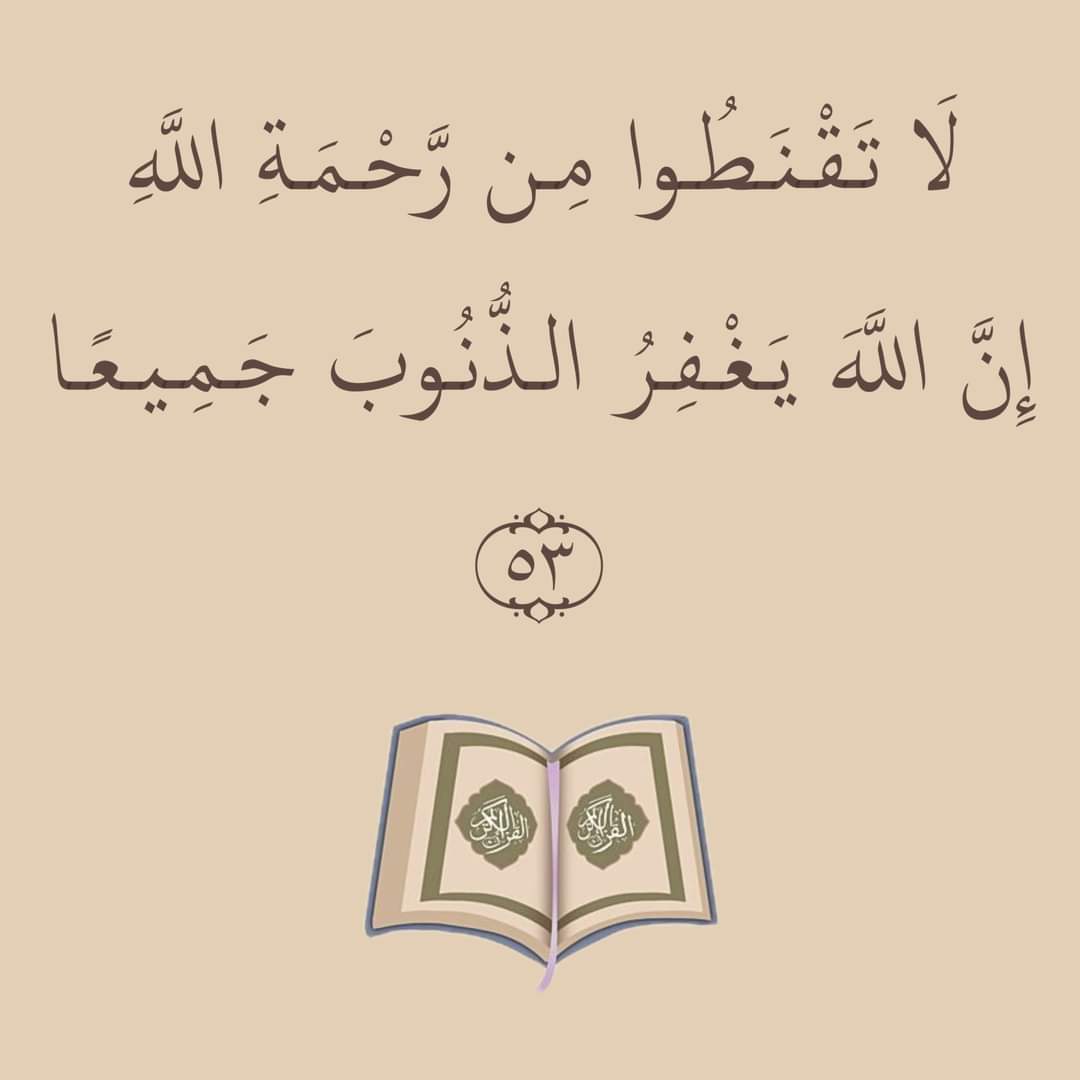 لَا تَقْنَطُوا مِن رَّحْمَةِ اللَّهِ
إِنَّ اللَّهَ يَغْفِرُ الذُّنُوبَ جَمِيعًا
٥٣
القرآن الكريم
القرآن الكريم